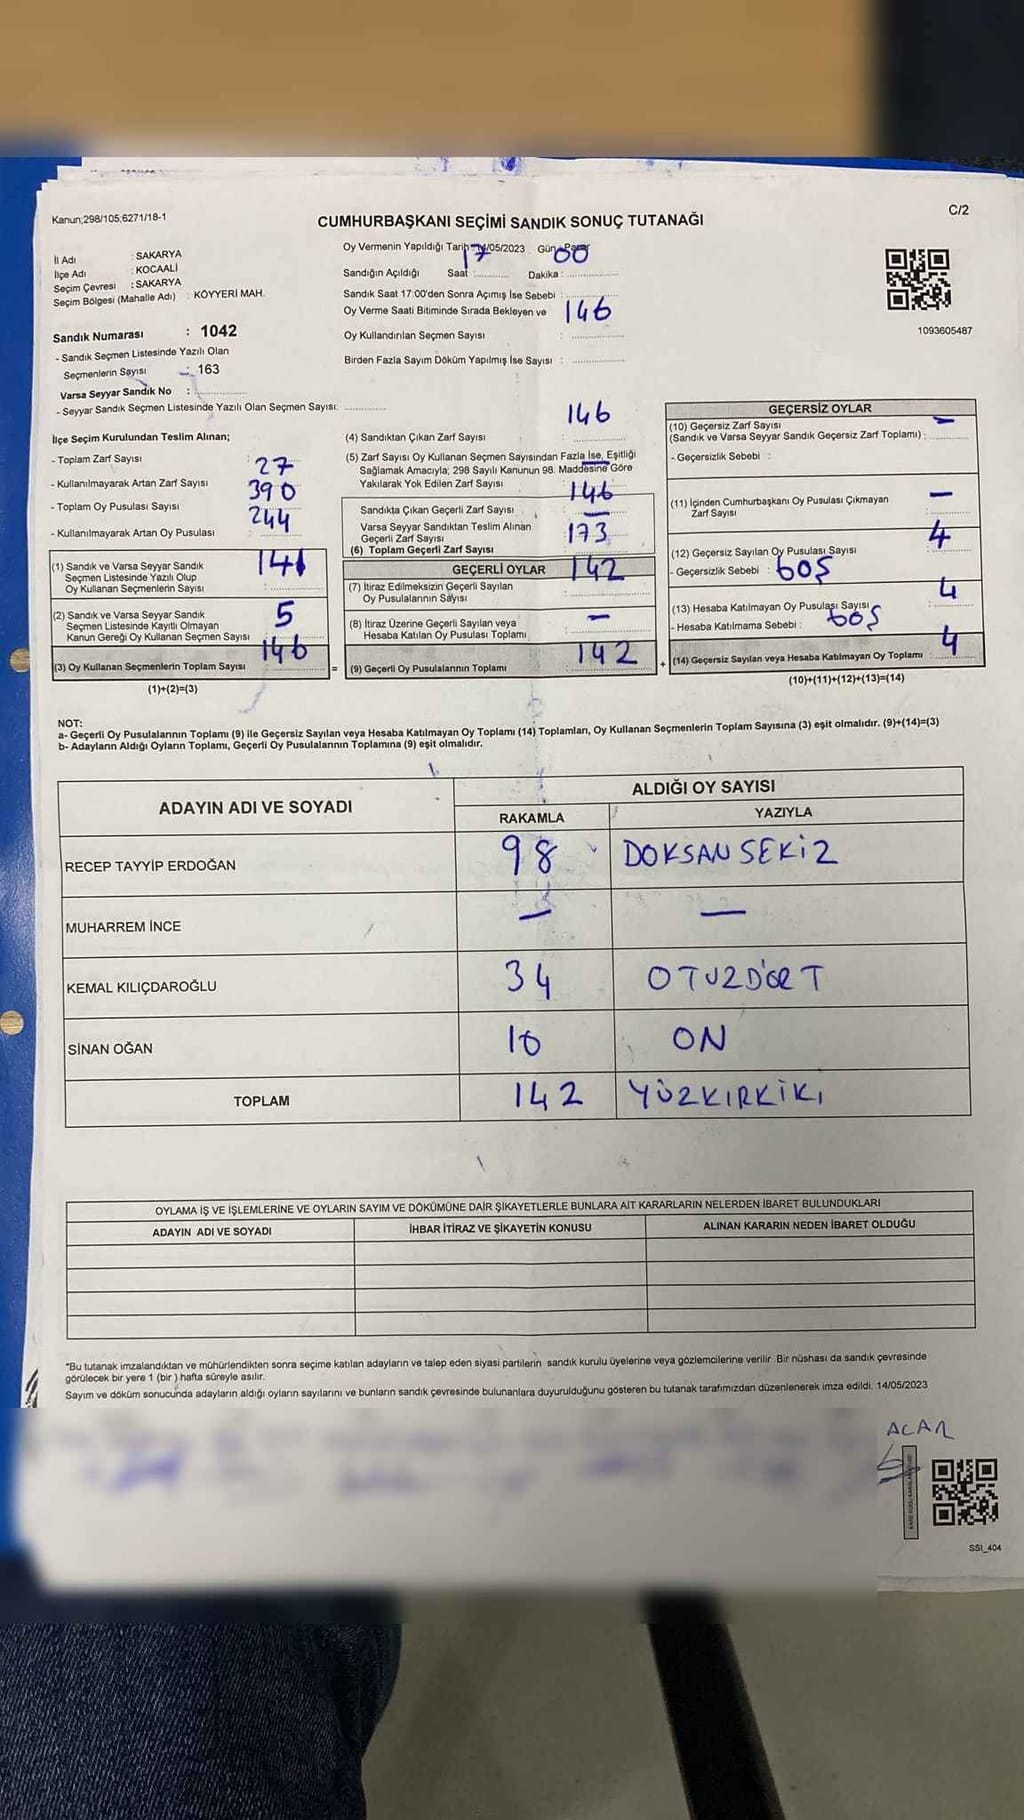 Kanun;298/105,6271/18-1
C/2
CUMHURBAŞKANI SEÇİMİ SANDIK SONUÇ TUTANAĞI
İl Adı : SAKARYA
İlçe Adı : KOCAALİ
Seçim Çevresi : SAKARYA
Seçim Bölgesi (Mahalle Adı) : KÖYYERİ MAH.
Sandık Numarası : 1042
- Sandık Seçmen Listesinde Yazılı Olan
Seçmenlerin Sayısı : 163
Varsa Seyyar Sandık No :
- Seyyar Sandık Seçmen Listesinde Yazılı Olan Seçmen Sayısı:
Oy Vermenin Yapıldığı Tarih /05/2023 Gün
Sandığın Açıldığı Saat : 17 Dakika : 00
Sandık Saat 17:00'den Sonra Açımış İse Sebebi :
Oy Verme Saati Bitiminde Sırada Bekleyen ve 146
Oy Kullandırılan Seçmen Sayısı :
Birden Fazla Sayım Döküm Yapılmış İse Sayısı :
1093605487
İlçe Seçim Kurulundan Teslim Alınan;
- Toplam Zarf Sayısı :
- Kullanılmayarak Artan Zarf Sayısı 27
- Toplam Oy Pusulası Sayısı 390
- Kullanılmayarak Artan Oy Pusulası 244
(1) Sandık ve Varsa Seyyar Sandık
Seçmen Listesinde Yazılı Olup
Oy Kullanan Seçmenlerin Sayısı : 141
(2) Sandık ve Varsa Seyyar Sandık
Seçmen Listesinde Kayıtlı Olmayan
Kanun Gereği Oy Kullanan Seçmen Sayısı 5
(3) Oy Kullanan Seçmenlerin Toplam Sayısı 146
(1)+(2)=(3)
146
(4) Sandıktan Çıkan Zarf Sayısı :
(5) Zarf Sayısı Oy Kullanan Seçmen Sayısından Fazla İse, Eşitliği
Sağlamak Amacıyla; 298 Sayılı Kanunun 98. Maddesine Göre
Yakılarak Yok Edilen Zarf Sayısı —
Sandıkta Çıkan Geçerli Zarf Sayısı 146
Varsa Seyyar Sandıktan Teslim Alınan
Geçerli Zarf Sayısı —
(6) Toplam Geçerli Zarf Sayısı 173
GEÇERLİ OYLAR
(7) İtiraz Edilmeksizin Geçerli Sayılan
Oy Pusulalarının Sayısı 142
(8) İtiraz Üzerine Geçerli Sayılan veya
Hesaba Katılan Oy Pusulası Toplamı —
= (9) Geçerli Oy Pusulalarının Toplamı 142
GEÇERSİZ OYLAR
(10) Geçersiz Zarf Sayısı —
(Sandık ve Varsa Seyyar Sandık Geçersiz Zarf Toplamı) :
- Geçersizlik Sebebi :
(11) İçinden Cumhurbaşkanı Oy Pusulası Çıkmayan
Zarf Sayısı : —
(12) Geçersiz Sayılan Oy Pusulası Sayısı 4
- Geçersizlik Sebebi : BOŞ
(13) Hesaba Katılmayan Oy Pusulası Sayısı : 4
- Hesaba Katılmama Sebebi : BOŞ
+ (14) Geçersiz Sayılan veya Hesaba Katılmayan Oy Toplamı : 4
(10)+(11)+(12)+(13)=(14)
NOT:
a- Geçerli Oy Pusulalarının Toplamı (9) ile Geçersiz Sayılan veya Hesaba Katılmayan Oy Toplamı (14) Toplamları, Oy Kullanan Seçmenlerin Toplam Sayısına (3) eşit olmalıdır. (9)+(14)=(3)
b- Adayların Aldığı Oyların Toplamı, Geçerli Oy Pusulalarının Toplamına (9) eşit olmalıdır.
ADAYIN ADI VE SOYADI
ALDIĞI OY SAYISI
RAKAMLA YAZIYLA
RECEP TAYYİP ERDOĞAN 98 DOKSANSEKİZ
MUHARREM İNCE — —
KEMAL KILIÇDAROĞLU 34 OTUZDÖRT
SİNAN OĞAN 10 ON
TOPLAM 142 YÜZKIRKİKİ
OYLAMA İŞ VE İŞLEMLERİNE VE OYLARIN SAYIM VE DÖKÜMÜNE DAİR ŞİKAYETLERLE BUNLARA AİT KARARLARIN NELERDEN İBARET BULUNDUKLARI
ADAYIN ADI VE SOYADI İHBAR İTİRAZ VE ŞİKAYETİN KONUSU ALINAN KARARIN NEDEN İBARET OLDUĞU
*Bu tutanak imzalandıktan ve mühürlendikten sonra seçime katılan adayların ve talep eden siyasi partilerin sandık kurulu üyelerine veya gözlemcilerine verilir .Bir nüshası da sandık çevresinde
görülecek bir yere 1 (bir ) hafta süreyle asılır.
Sayım ve döküm sonucunda adayların aldığı oyların sayılarını ve bunların sandık çevresinde bulunanlara duyurulduğunu gösteren bu tutanak tarafımızdan düzenlenerek imza edildi. 14/05/2023
ACAR
SSI_404